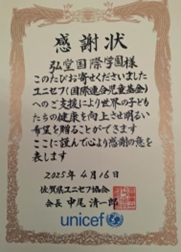 感謝状
弘堂国際学園様
このたびお寄せくださいました
ユニセフ(国際連合児童基金)
へのご支援により世界の子ども
たちの健康を向上させ明るい
希望を贈ることができます
ここに謹んで心より感謝の意を
表します
2025年4月16日
佐賀県ユニセフ協会
会長 中尾清一郎
unicef